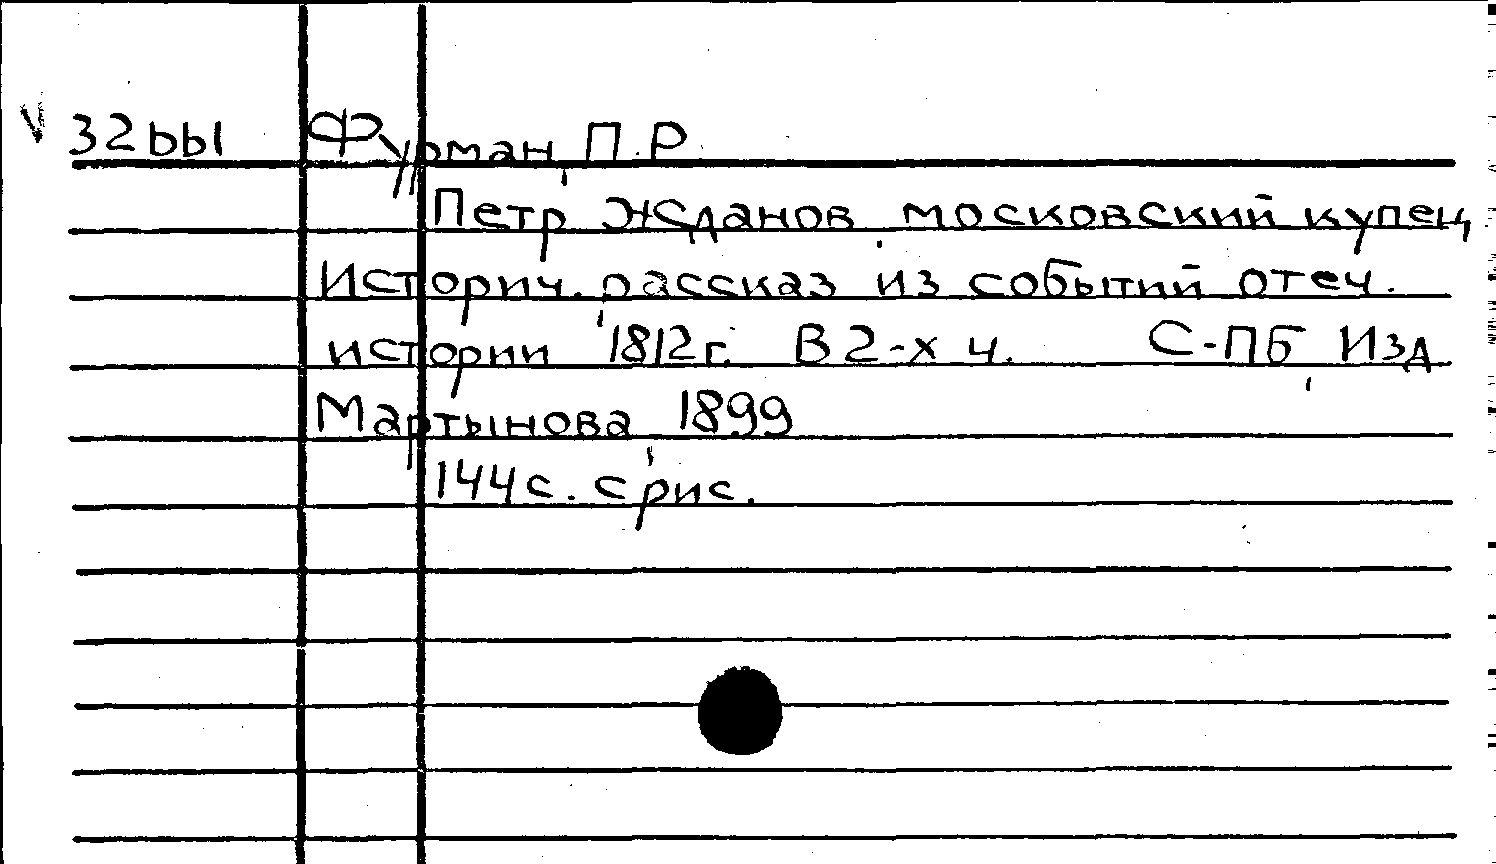 V 32661 Фурман, П.Р.
Петр Жданов, московский купец
Историч. рассказ из событий отеч.
истории 1812г. В 2-х ч. С-ПБ, Изд.
Мартынова, 1899
144с. с рис.